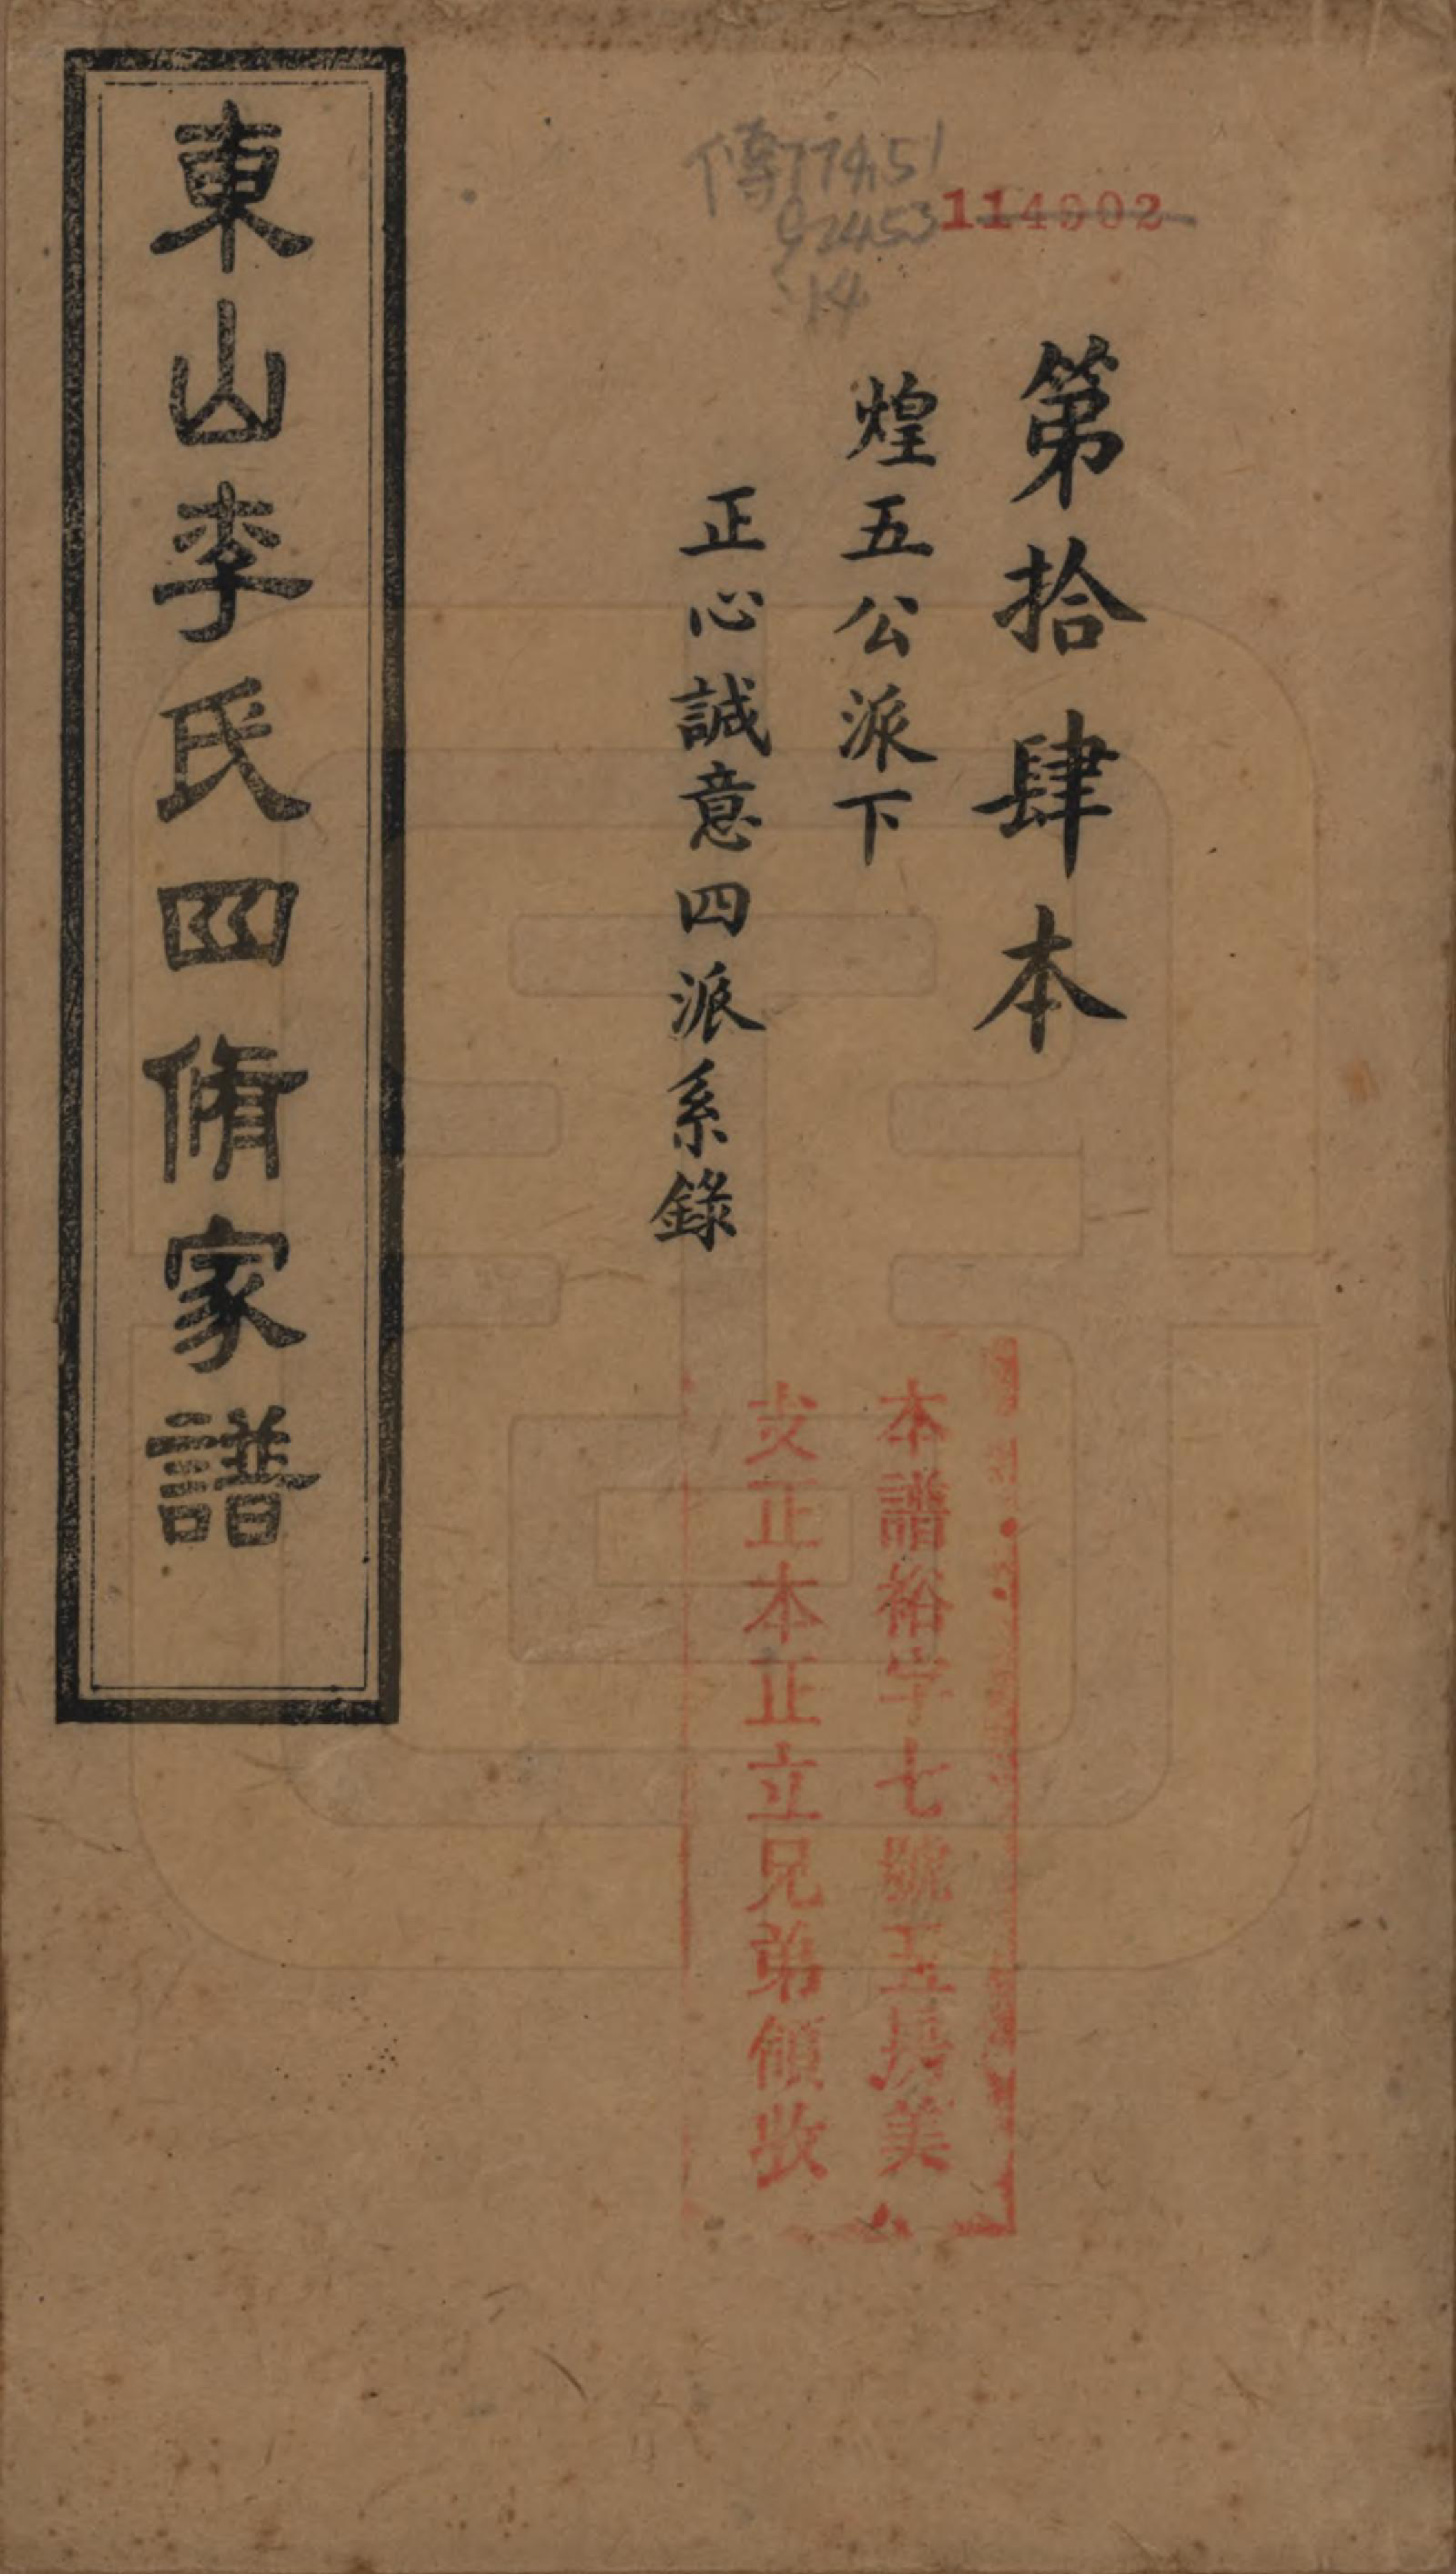 傳774.51
92453
:14
114902
第拾肆本
煌五公派下
正心誠意四派系錄
本譜裕字七號五房美
支正本正立兄弟領收
東山李氏四脩家譜